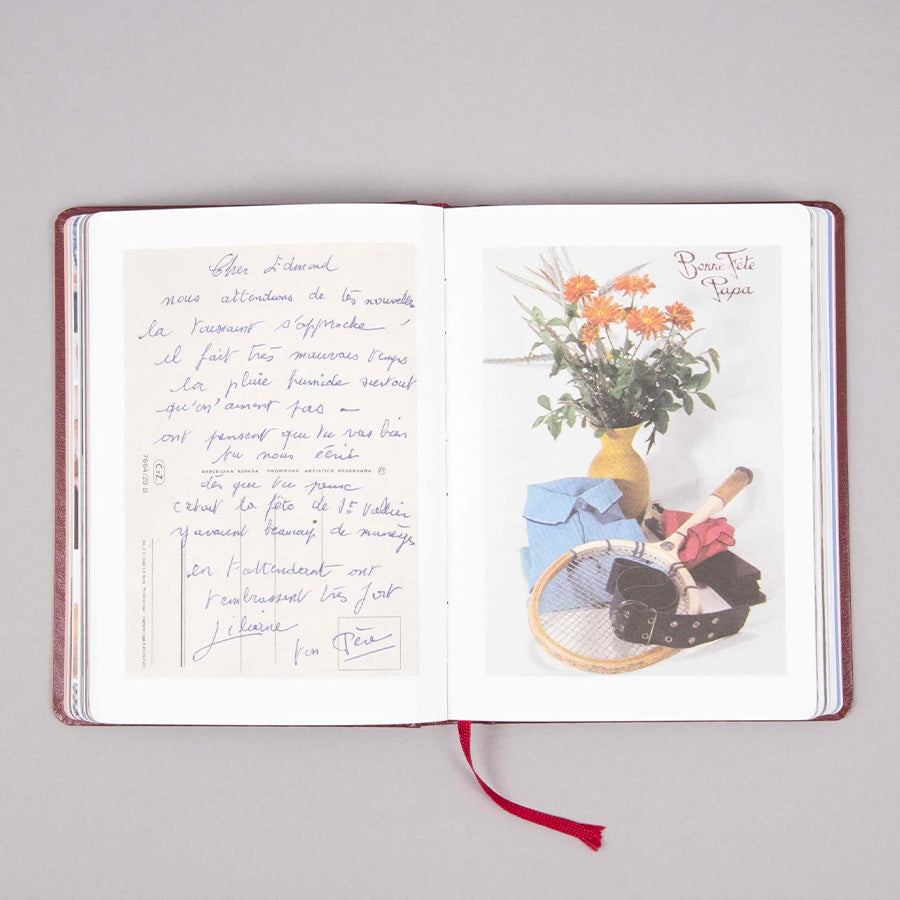 Cher Edmond
nous attendions de tes nouvelles
la toussaint s'approche,
il fait très mauvais temps
la pluie humide surtout
qu'on'aiment pas —
ont pensent que tu vas bien
tu nous écris
BARCELONA ESPAÑA PROHIBIDO ARTISTICA RESERVADA
CyZ
7664/29 B
dès que tu peux
c'était la fête de St Vallier
y avaient beaucoup de manèges
en t'attendant ont
t'embrassent très fort
Liliane
ton Père
Bonne Fête
Papa